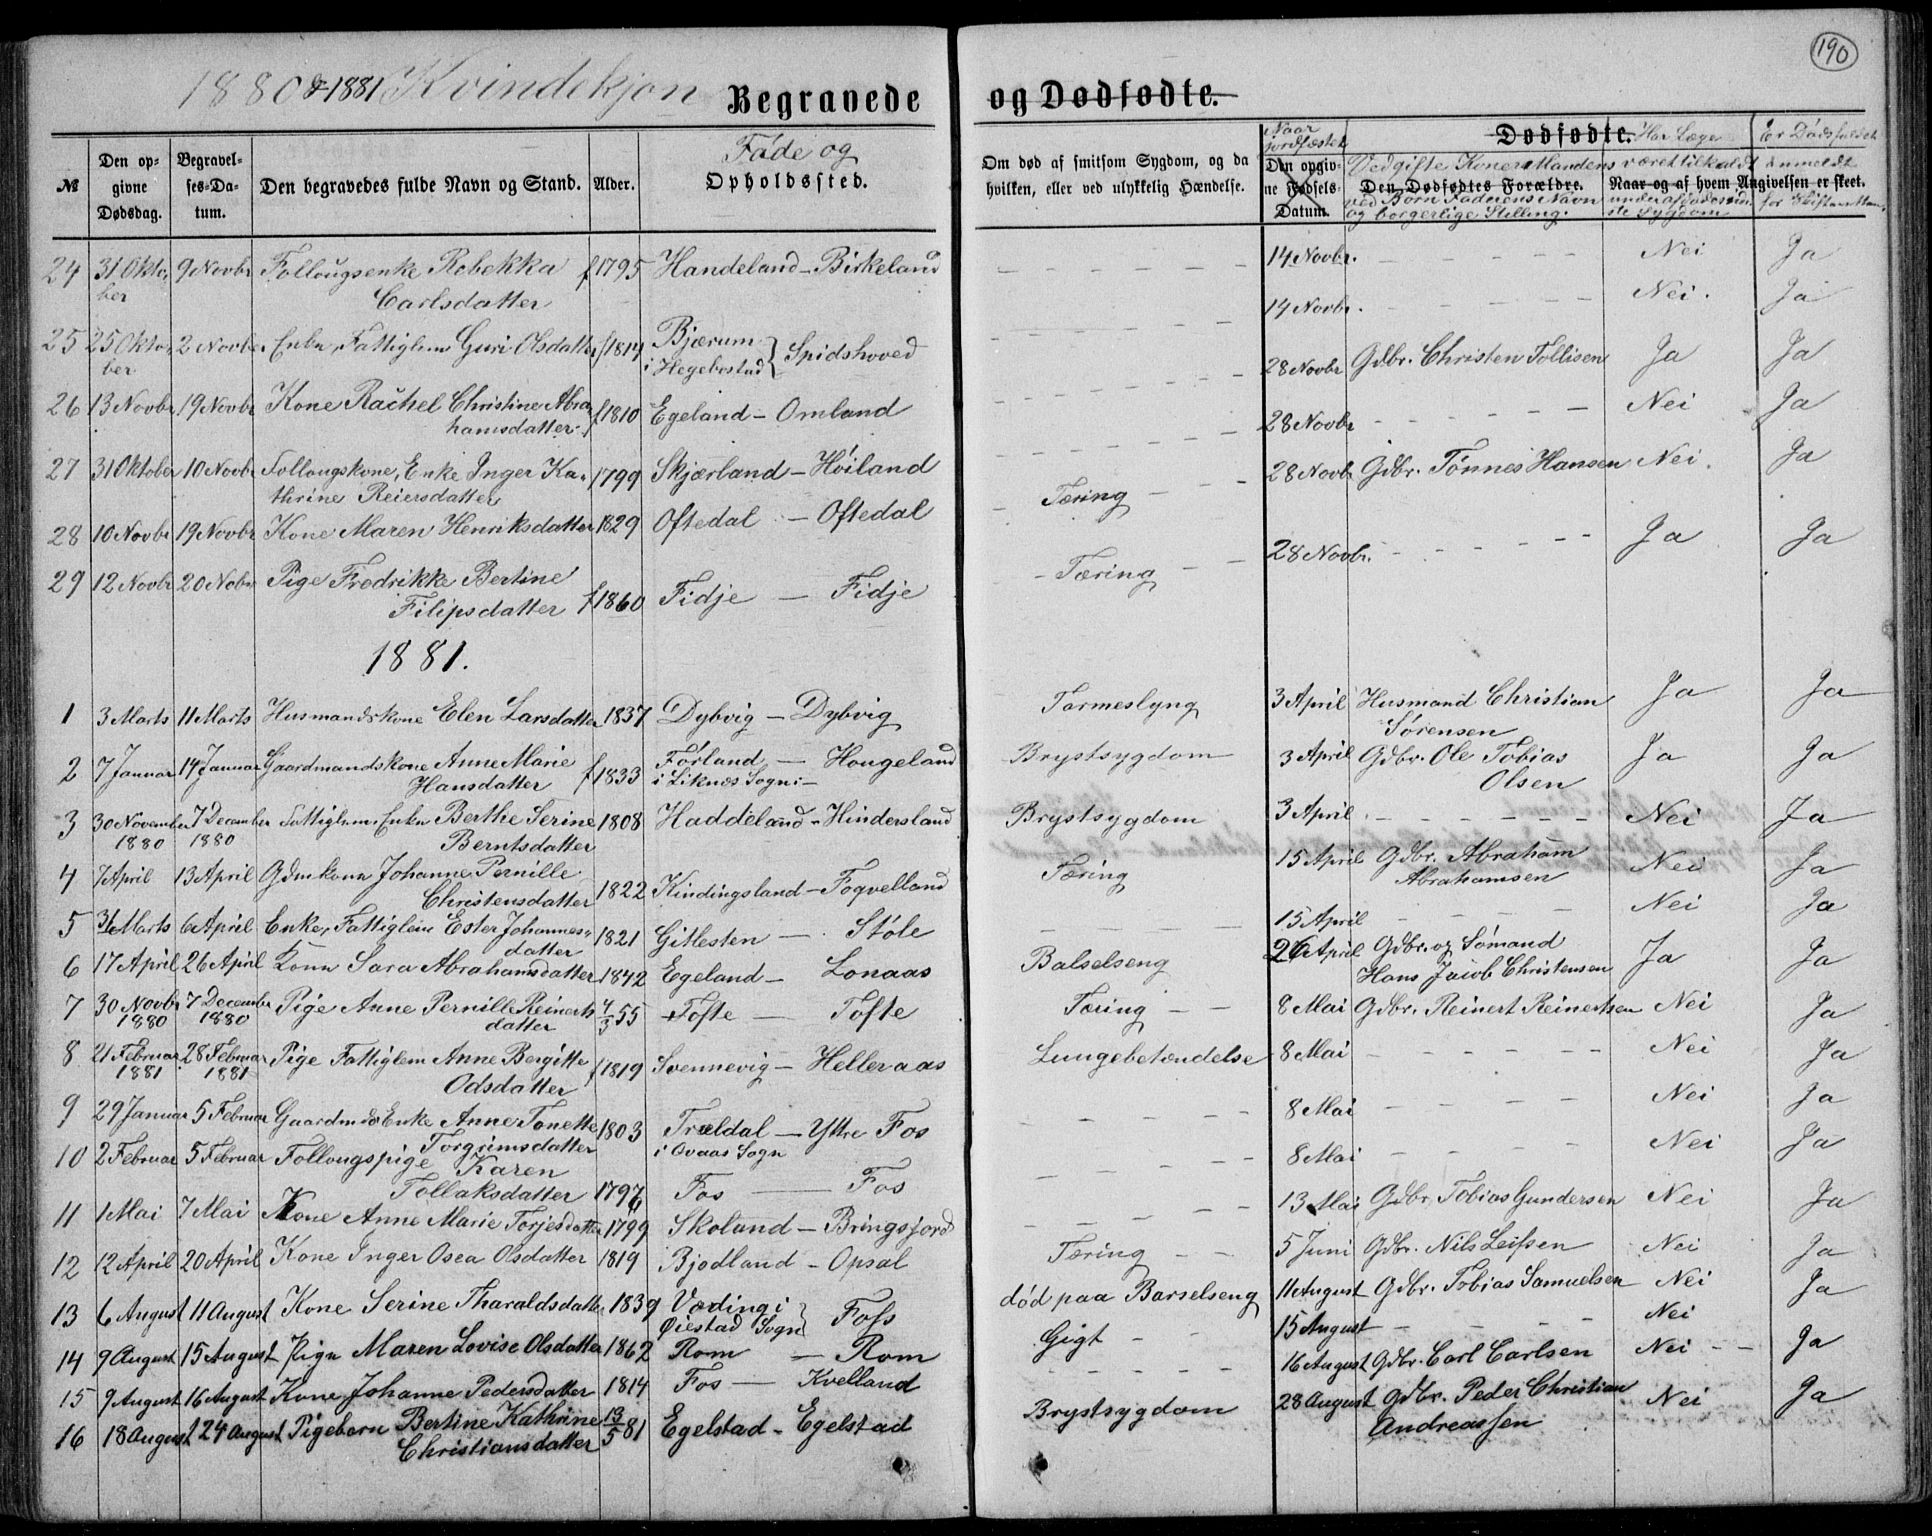 190
1880 & 1881 Kvindekjøn Begravede og Dødfødte.
№ | Den opgivne Dødsdag. | Begravelses=Datum. | Den begravedes fulde Navn og Stand. | Alder. | Føde og Opholdssted. | Om død af smitsom Sygdom, og da hvilken, eller ved ulykkelig Hændelse. | Naar jordfæstet | Den opgivne Fødsels-Datum. | Dødfødte. | Vedgifte Koner Mandens ved Børn Faderens Navn og borgerlige Stilling. | Den Dødfødtes Forældre. | Har Læge været tilkaldt under afdødes sidste Sygdom | Naar og af hvem Angivelsen er skeet. | Er Dødsfaldet anmeldt for Skifteretten.
24 | 31 Oktober | 9 Novbr | Follougsenke Rebekka Carlsdatter | f 1795 | Handeland – Birkeland | – – – | 14 Novbr. | – – – | Nei | Ja
25 | 25 Oktober | 2 Novbr. | Enke, Fattiglem Guri Olsdatter | f 1814 | Bjærum i Hegebostad } Spidshoved | – – – | 14 Novbr. | – – – | Nei. | Ja
26 | 13 Novbr | 19 Novbr | Kone Rachel Christine Abrahamsdatter. | f 1810 | Egeland – Omland | – – – | 28 Novbr | Gdbr. Christen Tollisen | Ja | Ja
27 | 31 Oktober | 10 Novbr | Follougskone, Enke Inger Kathrine Reiersdatter | 1799 | Skjærland – Høiland | – – – | 28 Novbr | – – – | Nei | Ja
28 | 10 Novbr | 19 Novbr | Kone Maren Henriksdatter | 1829 | Oftedal – Oftedal | Tæring | 28 Novbr | Gdbr. Tønnes Hansen | Nei. | Ja
29 | 12 Novbr | 20 Nobr | Pige Fredrikke Bertine Filipsdatter | f 1860 | Fidje – Fidje | Tæring | 28 Novbr. | – – – | Ja | Ja
1881.
1 | 3 Marts | 11 Marts | Husmandskone Elen Larsdatter | 1837 | Dybvig – Dybvig | Tarmeslyng | 3 April | Husmand Christian Sørensen | Ja | Ja
2 | 7 Januar | 14 Januar | Gaardmandskone Anne Marie Hansdatter | f 1833 | Førland i Liknes Sogn – Hougeland | Brystsygdom | 3 April | Gdbr. Ole Tobias Olsen | Ja | Ja
3 | 30 November 1880 | 7 December 1880 | Fattiglem, Enke Berthe Serine Berntsdatter | 1808 | Haddeland – Hindersland | Brystsygdom | 3 April | – – – | Nei | Ja
4 | 7 April | 13 April | Gdmkone Johanne Pernille Christensdatter | 1822 | Kindingsland – Foqvelland | Tæring | 15 April | Gdbr. Abraham Abrahamsen | Nei | Ja
5 | 31 Marts | 6 April | Enke, Fattiglem Ester Johannesdatter | 1821 | Gitlesten – Støle | – – – | 15 April | – – – | Nei | Ja
6 | 17 April | 26 April | Kone Sara Abrahamsdatter | 1842 | Egeland – Lonaas | Balselseng | 26 April | Gdbr. og Sømand Hans Jacob Christensen | Ja | Ja
7 | 30 Novbr 1880 | 7 December 1880 | Pige Anne Pernille Reinertsdatter | 4/3 55 | Tofte – Tofte | Tæring – – | 8 Mai | Gdbr. Reinert Reinertsen | Nei | Ja
8 | 21 Februar 1881 | 28 Februar 1881 | Pige Fattiglem Anne Bergitte Odsdatter | f 1819 | Svennevig – Helleraas | Lungebetændelse | 8 Mai | – – – | Nei | Ja
9 | 29 Januar | 5 Februar | Gaardmds Enke Anne Tonette Torgrimsdatter | 1803 | Trældal i Qvaas Sogn – Yttre Fos | – – – | 8 Mai | – – – | Nei | Ja
10 | 2 Februar | 5 Februar | Follougspige Karen Tollaksdatter | 1796 | Fos – Fos | – – – | 8 Mai | – – – | Nei | Ja
11 | 1 Mai | 7 Mai | Kone Anne Marie Torjesdatter | 1799 | Skoland – Bringsjord | – – – | 13 Mai | Gdbr. Tobias Gundersen | Nei | Ja
12 | 12 April | 20 April | Kone Inger Osea Olsdatter | 1819 | Bjodland – Opsal | Tæring – – | 5 Juni | Gdbr. Nils Leifsen | Nei | Ja
13 | 6 August | 11 August | Kone Serine Tharaldsdatter | 1839 | Væding i Øiestad Sogn } Foss | død paa Barselseng | 11 August | Gdbr. Tobias Samuelsen | Nei | Ja
14 | 9 August | 15 August | Pige Maren Lovise Olsdatter | 1862 | Rom – Rom | Gigt – – | 15 August | – – – | Nei
15 | 9 August | 16 August | Kone Johanne Pedersdatter | 1814 | Fos – Kvelland | – – – | 16 August | Gdbr. Carl Carlsen | Nei – – | Ja
16 | 18 August | 24 August | Pigebarn Bertine Kathrine Christiansdatter | 13/5 81 | Egelstad – Egelstad | Brystsygdom | 28 August | Gdbr. Peder Christian Andreassen | Nei | Ja